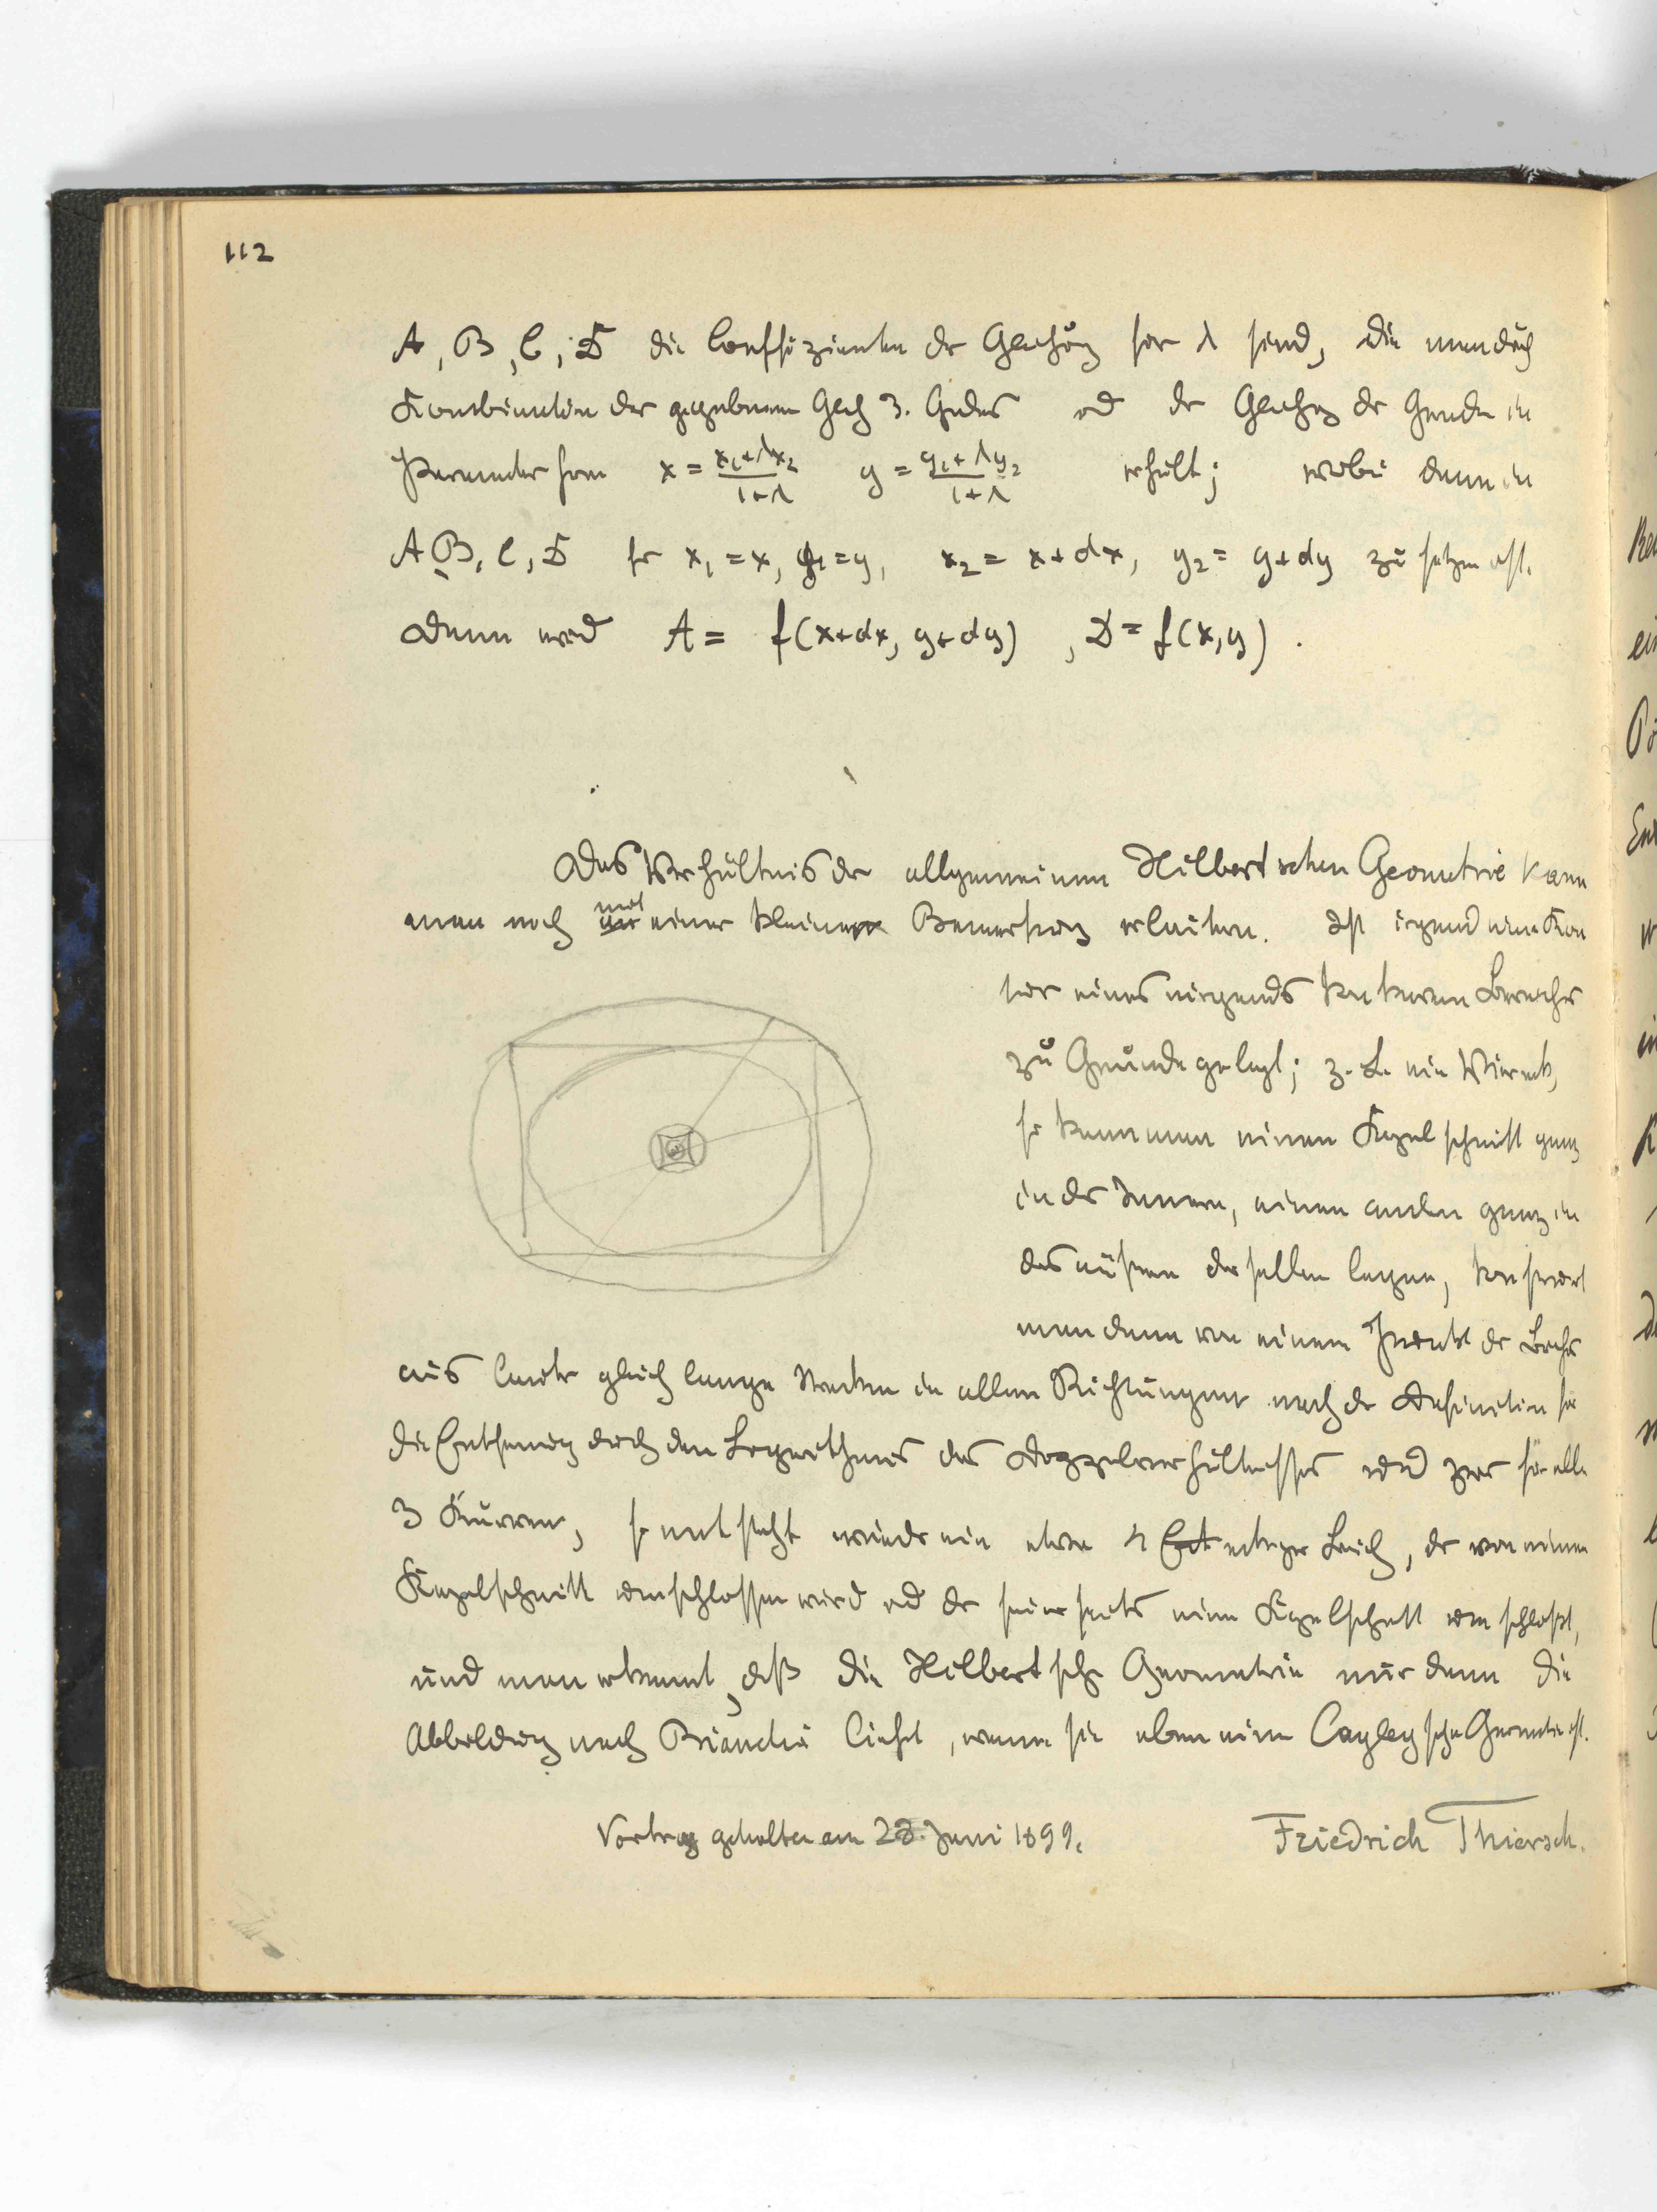 112
A, B, C, D die Coeffizienten der Gleichung für λ sind, die man durch
Kombination der gegebenen Gleich 3. Grades und der Gleichung der Geraden in
Parameterform x = (x₁+λx₂)/(1+λ) y = (y₁+λy₂)/(1+λ) erhält; wobei dann in
A, B, C, D für x₁ = x, y₁ = y, x₂ = x+dx, y₂ = y+dy zu setzen ist.
Dann wird A = f(x+dx, y+dy), D = f(x,y).
Das Verhältnis der allgemeinen Hilbertschen Geometrie kann
man noch mit einer kleinen Bemerkung erläutern. Ist irgend eine Kon
tur eines nirgends konkaven Bereiches
zu Grunde gelegt; z. B. ein Viereck,
so kann man einen Kegelschnitt ganz
in das Innere, einen andern ganz in
das äußere desselben legen, konstruiert
man dann von einem Punkt des Bereichs
aus lauter gleich lange Strecken in allen Richtungen nach der Definition für
die Entfernung durch den Logarithmus des Doppelverhältnisses und zwar für alle
3 Kurven, so entsteht wieder ein etwa 4 eckiger Bereich, der von einem
Kegelschnitt umschlossen wird und der seinerseits einen Kegelschnitt umschließt,
und man erkennt, daß die Hilbertsche Geometrie nur dann die
Abbildung nach liefert, wenn sie eben eine Cayleysche Geometrie ist.
Vortrag gehalten am 28. Juni 1899.
Friedrich Thiersch.